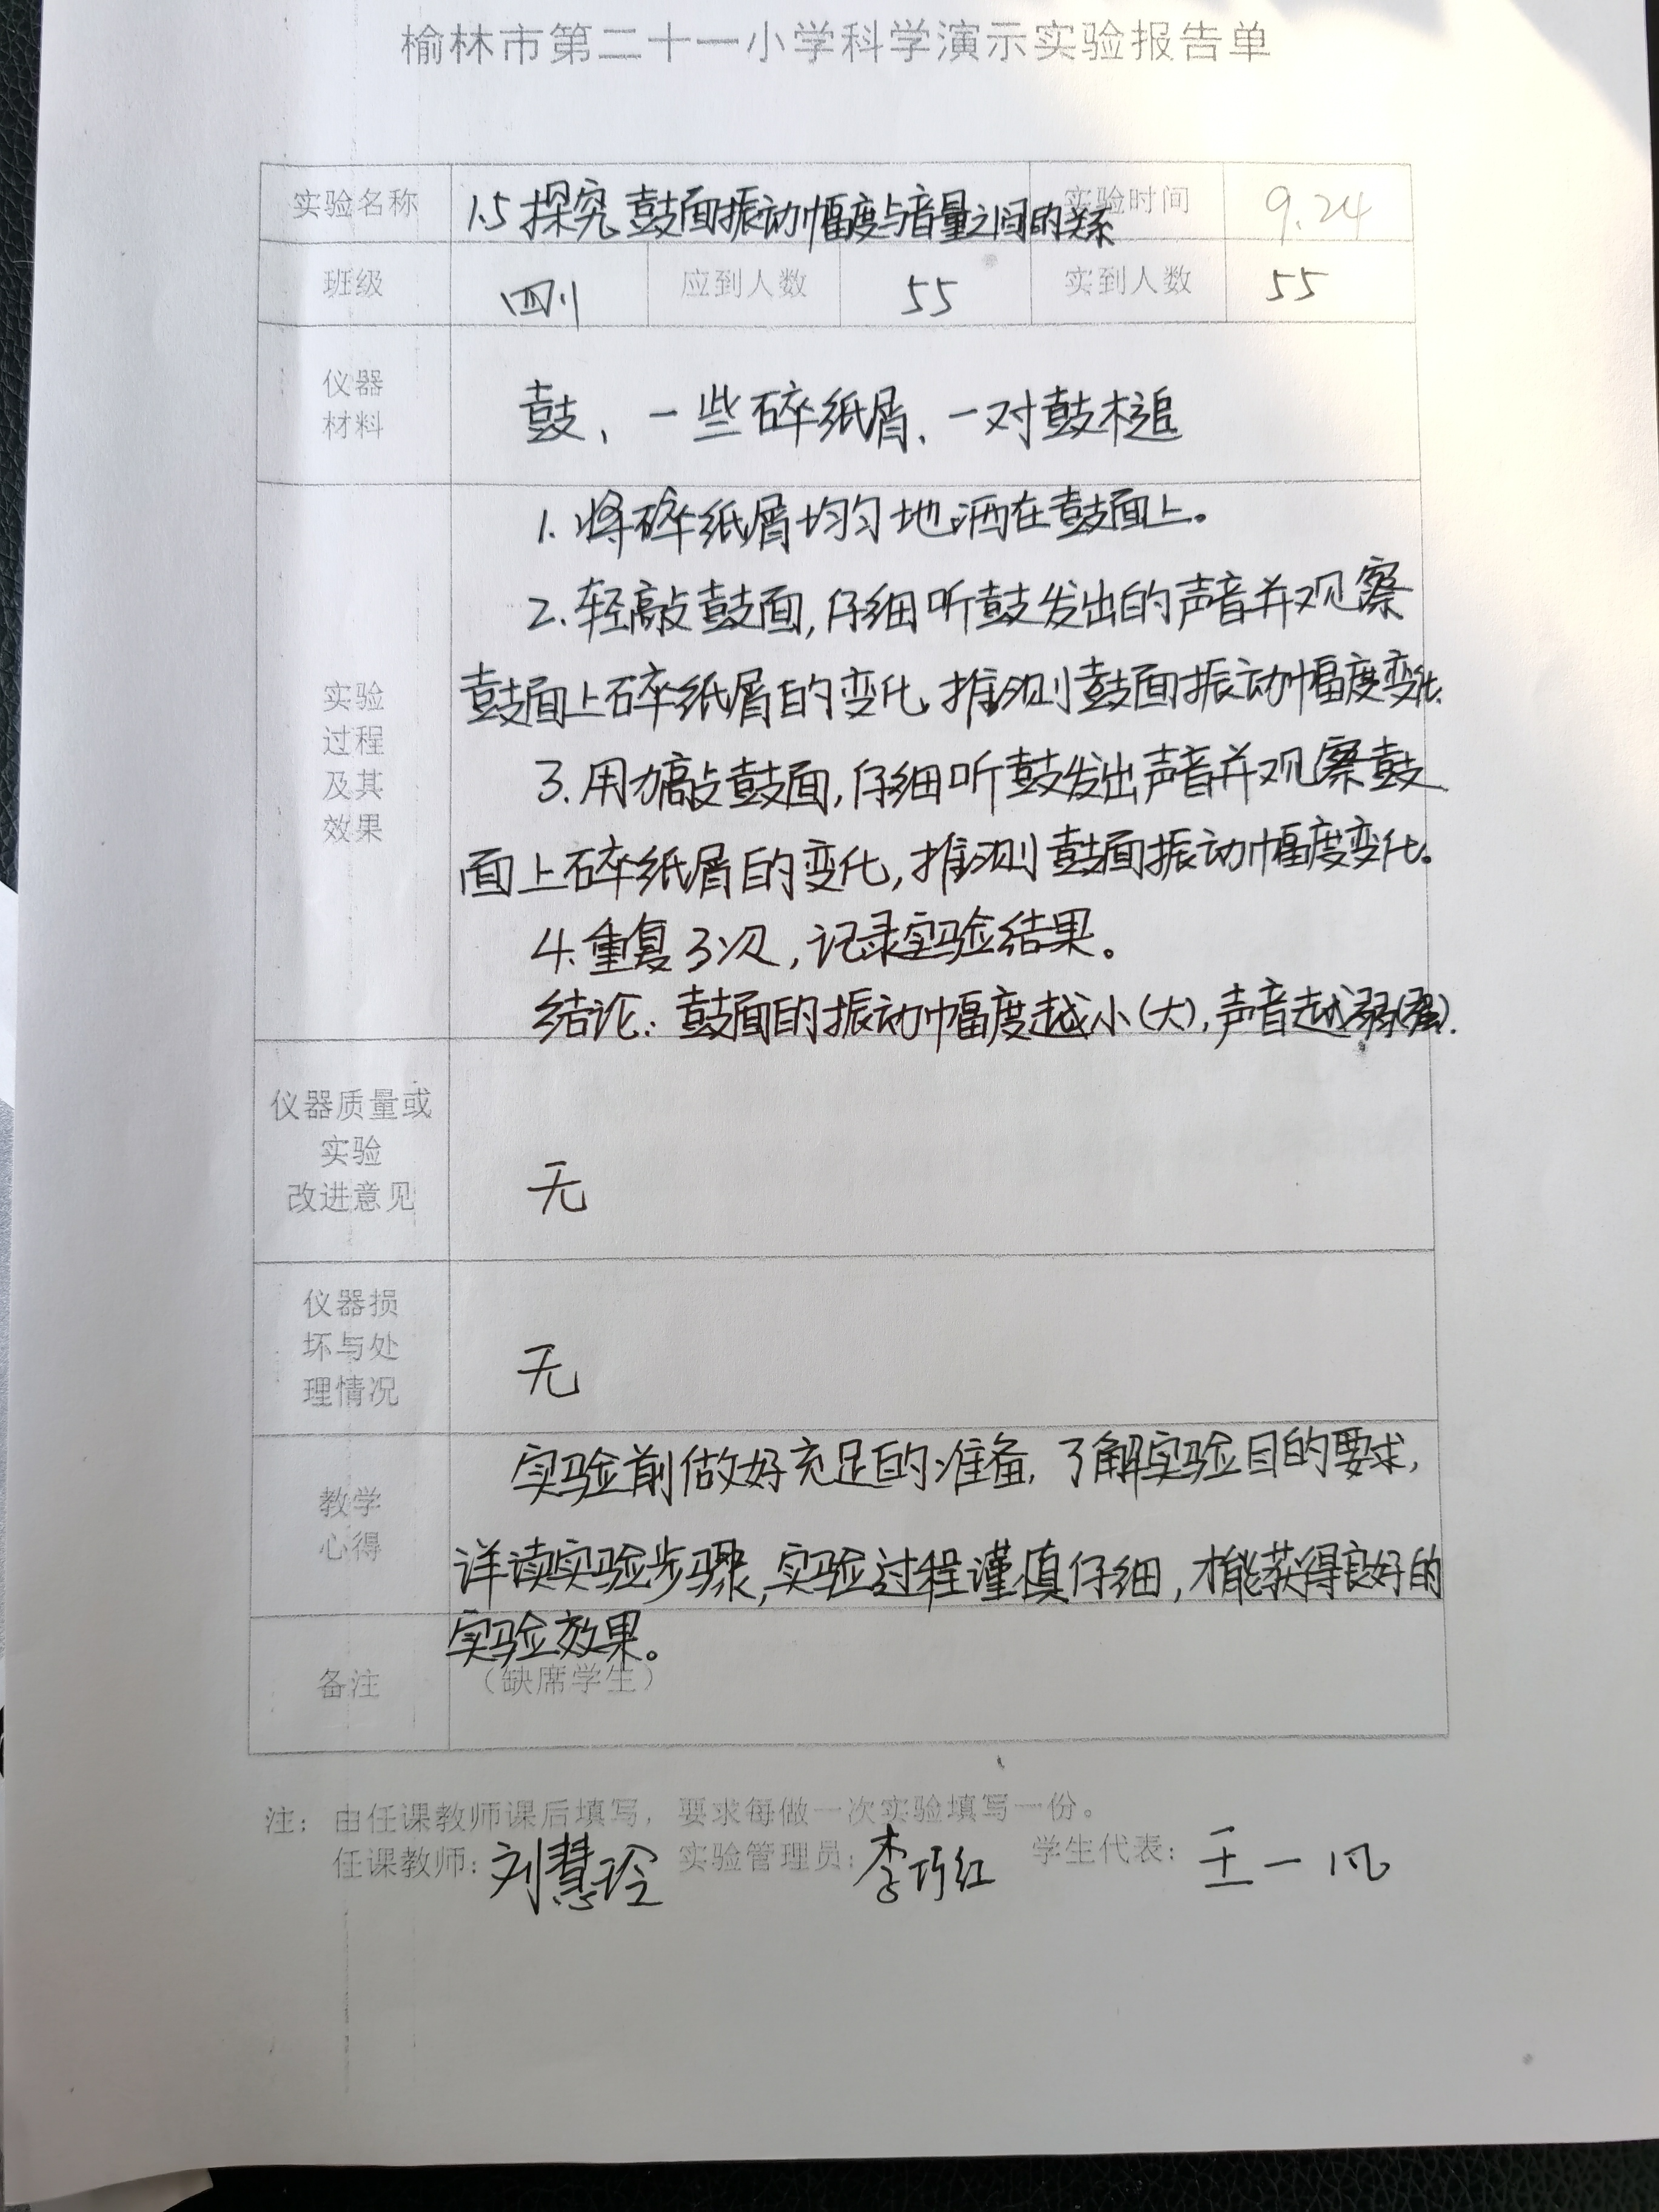 榆林市第二十一小学科学演示实验报告单
实验名称 1.5探究鼓面振动幅度与音量之间的关系 实验时间 9.24
班级 四1 应到人数 55 实到人数 55
仪器
材料
鼓、一些碎纸屑、一对鼓槌
实验
过程
及其
效果
1.将碎纸屑均匀地洒在鼓面上。
2.轻敲鼓面,仔细听鼓发出的声音并观察
鼓面上碎纸屑的变化,推测鼓面振动幅度变化.
3.用力敲鼓面,仔细听鼓发出声音并观察鼓
面上碎纸屑的变化,推测鼓面振动幅度变化。
4.重复3次,记录实验结果。
结论:鼓面的振动幅度越小(大),声音越弱(强).
仪器质量或
实验
改进意见
无
仪器损
坏与处
理情况
无
教学
心得
实验前做好充足的准备,了解实验目的要求,
详读实验步骤,实验过程谨慎仔细,才能获得良好的
实验效果。
备注 (缺席学生)
注：由任课教师课后填写，要求每做一次实验填写一份。
任课教师:刘慧玲 实验管理员:李巧红 学生代表:王一凡